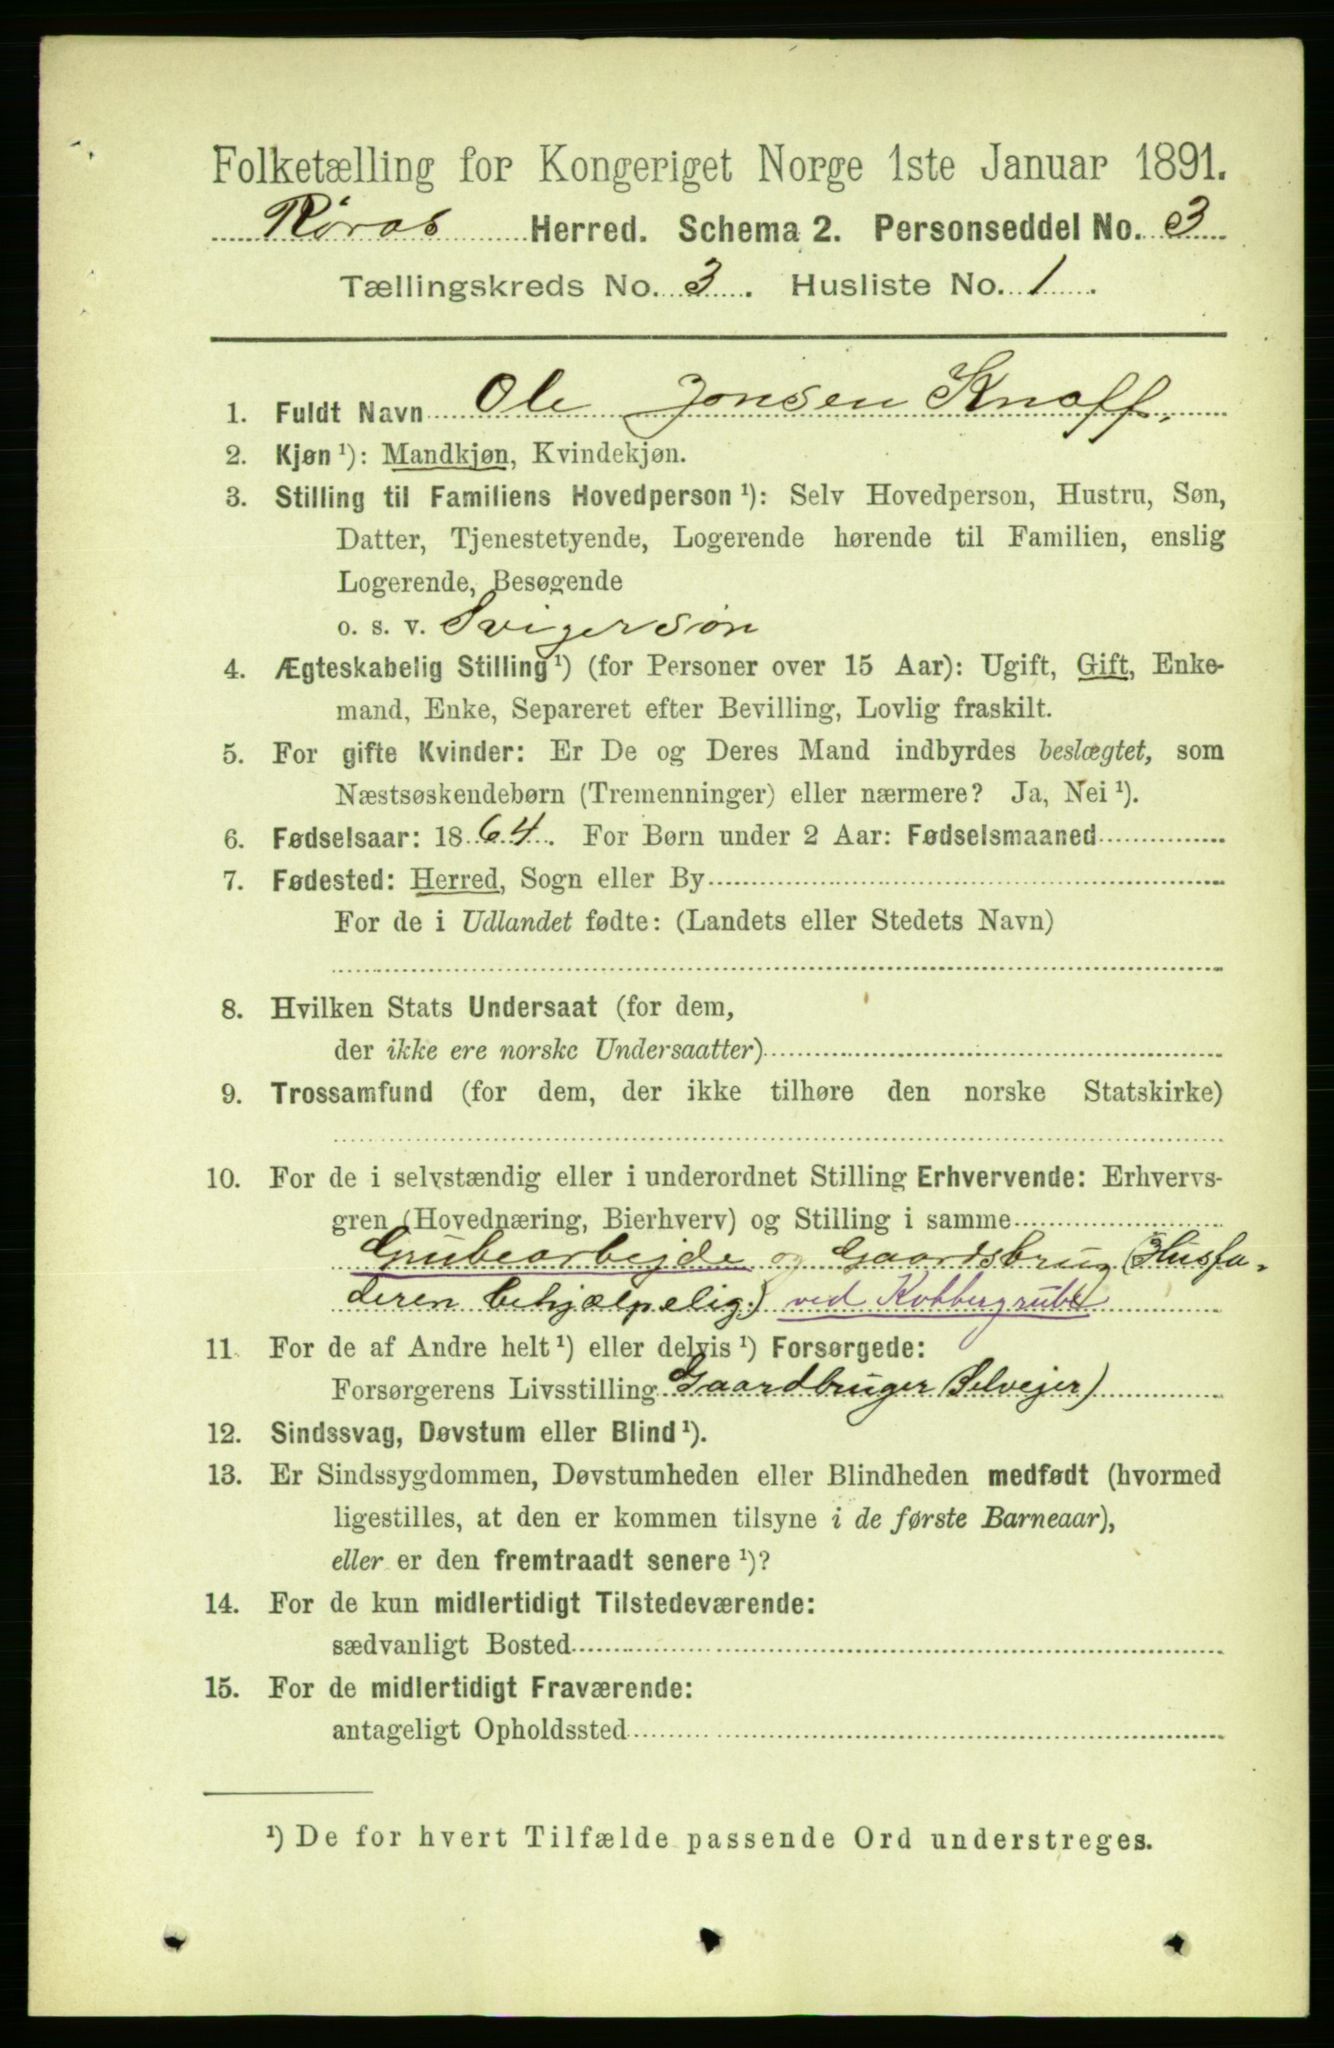 Folketælling for Kongeriget Norge 1ste Januar 1891.
Røros Herred. Schema 2. Personseddel No. 3
Tællingskreds No. 3. Husliste No. 1.
1. Fuldt Navn Ole Jonsen Knoff.
2. Kjøn ¹): Mandkjøn, Kvindekjøn.
3. Stilling til Familiens Hovedperson ¹): Selv Hovedperson, Hustru, Søn,
Datter, Tjenestetyende, Logerende hørende til Familien, enslig
Logerende, Besøgende
o. s. v. Svigersøn
4. Ægteskabelig Stilling ¹) (for Personer over 15 Aar): Ugift, Gift, Enke-
mand, Enke, Separeret efter Bevilling, Lovlig fraskilt.
5. For gifte Kvinder: Er De og Deres Mand indbyrdes beslægtet, som
Næstsøskendebørn (Tremenninger) eller nærmere? Ja, Nei ¹).
6. Fødselsaar: 1864. For Børn under 2 Aar: Fødselsmaaned
7. Fødested: Herred, Sogn eller By
For de i Udlandet fødte: (Landets eller Stedets Navn)
8. Hvilken Stats Undersaat (for dem,
der ikke ere norske Undersaatter)
9. Trossamfund (for dem, der ikke tilhøre den norske Statskirke)
10. For de i selvstændig eller i underordnet Stilling Erhvervende: Erhvervs-
gren (Hovednæring, Bierhverv) og Stilling i samme
Grubearbejde og Gaardsbrug (Husfa-
deren behjælpelig.) ved Kobbergrube
11. For de af Andre helt ¹) eller delvis ¹) Forsørgede:
Forsørgerens Livsstilling Gaardbruger Selvejer)
12. Sindssvag, Døvstum eller Blind ¹).
13. Er Sindssygdommen, Døvstumheden eller Blindheden medfødt (hvormed
ligestilles, at den er kommen tilsyne i de første Barneaar),
eller er den fremtraadt senere ¹)?
14. For de kun midlertidigt Tilstedeværende:
sædvanligt Bosted
15. For de midlertidigt Fraværende:
antageligt Opholdssted
¹) De for hvert Tilfælde passende Ord understreges.